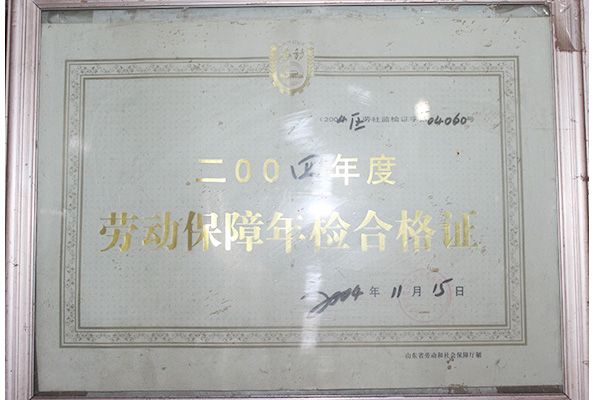 (2004)区劳社监检证字第04060号
二00四年度
劳动保障年检合格证
2004年11月15日
山东省劳动和社会保障厅制